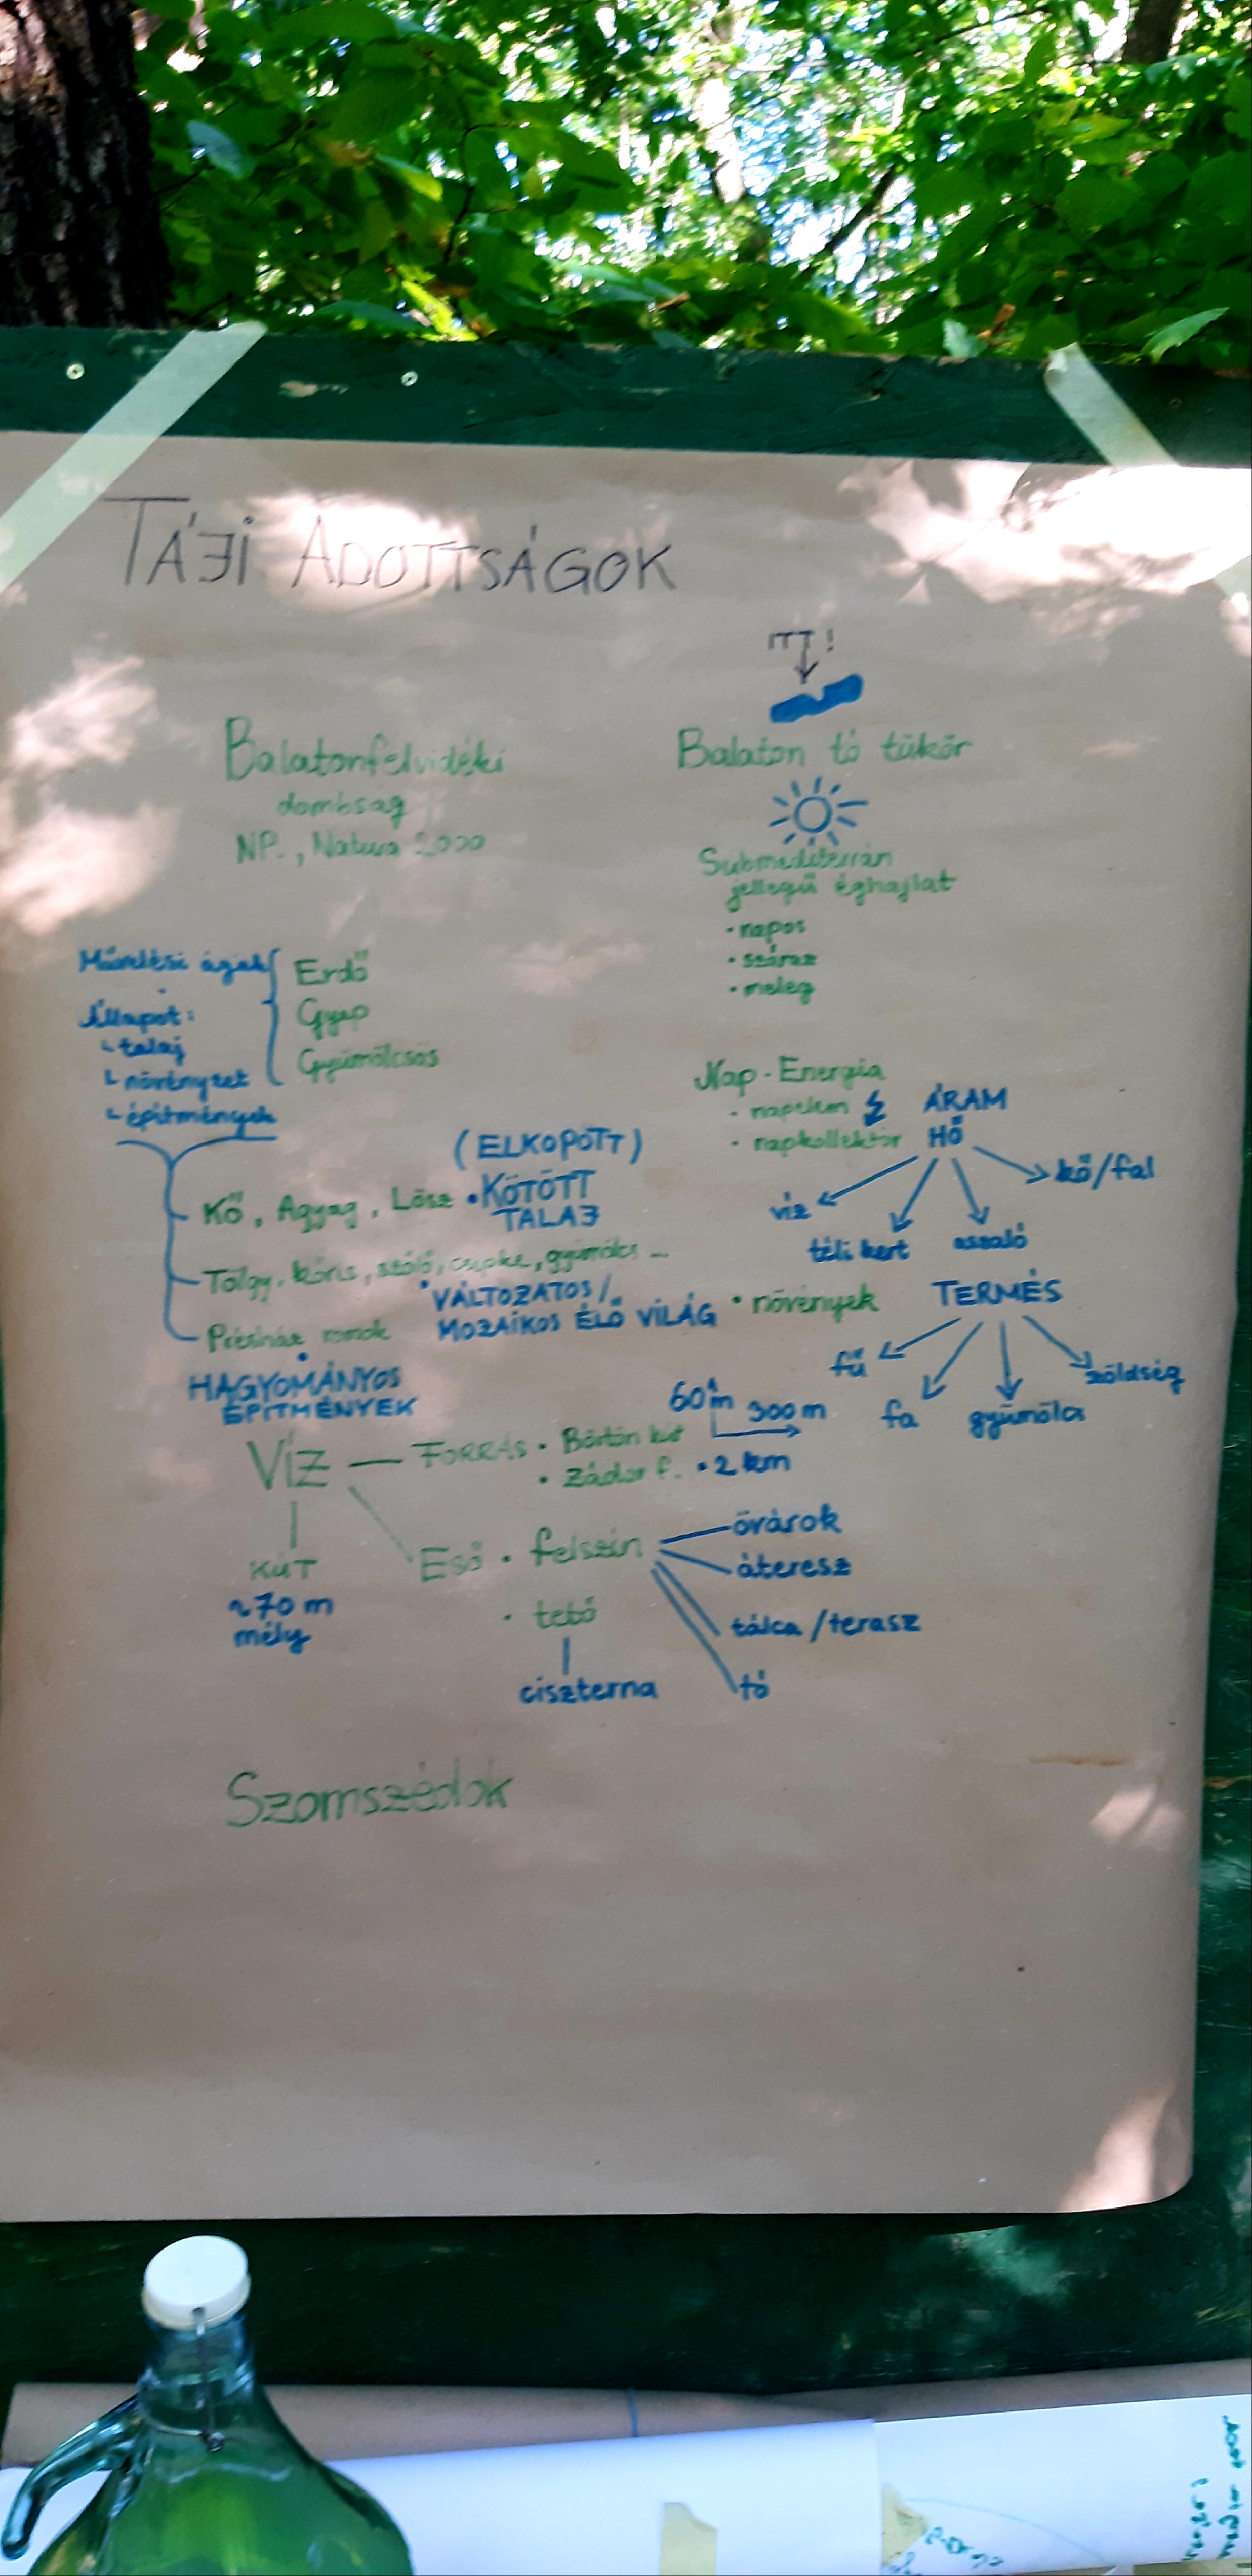 TÁJI ADOTTSÁGOK
ITT!
Balatonfelvidéki
dombság
NP., Natura 2000
Balaton tó tükör
Szubmediterrán
jellegű éghajlat
• napos
• száraz
• meleg
Művelési ágak
Erdő
Gyep
Gyümölcsös
Állapot:
talaj
növényzet
építmények
Nap-Energia
• napelem
ÁRAM
• napkollektor
HŐ
víz
téli kert
aszaló
kő/fal
(ELKOPOTT)
Kő, Agyag, Lösz • KÖTÖTT
TALAJ
Tölgy, kőris, szőlő, csipke, gyümölcs ...
• VÁLTOZATOS/
MOZAIKOS ÉLŐ VILÁG
• növények
TERMÉS
fű
fa
gyümölcs
zöldség
Présház romok
• HAGYOMÁNYOS
ÉPITMÉNYEK
60m
300 m
VÍZ — FORRÁS • Börtön kút
• Zádor f. • 2 km
KÚT
~70 m
mély
Eső • felszín
övárok
áteresz
tálca/terasz
tó
• tető
ciszterna
Szomszédok